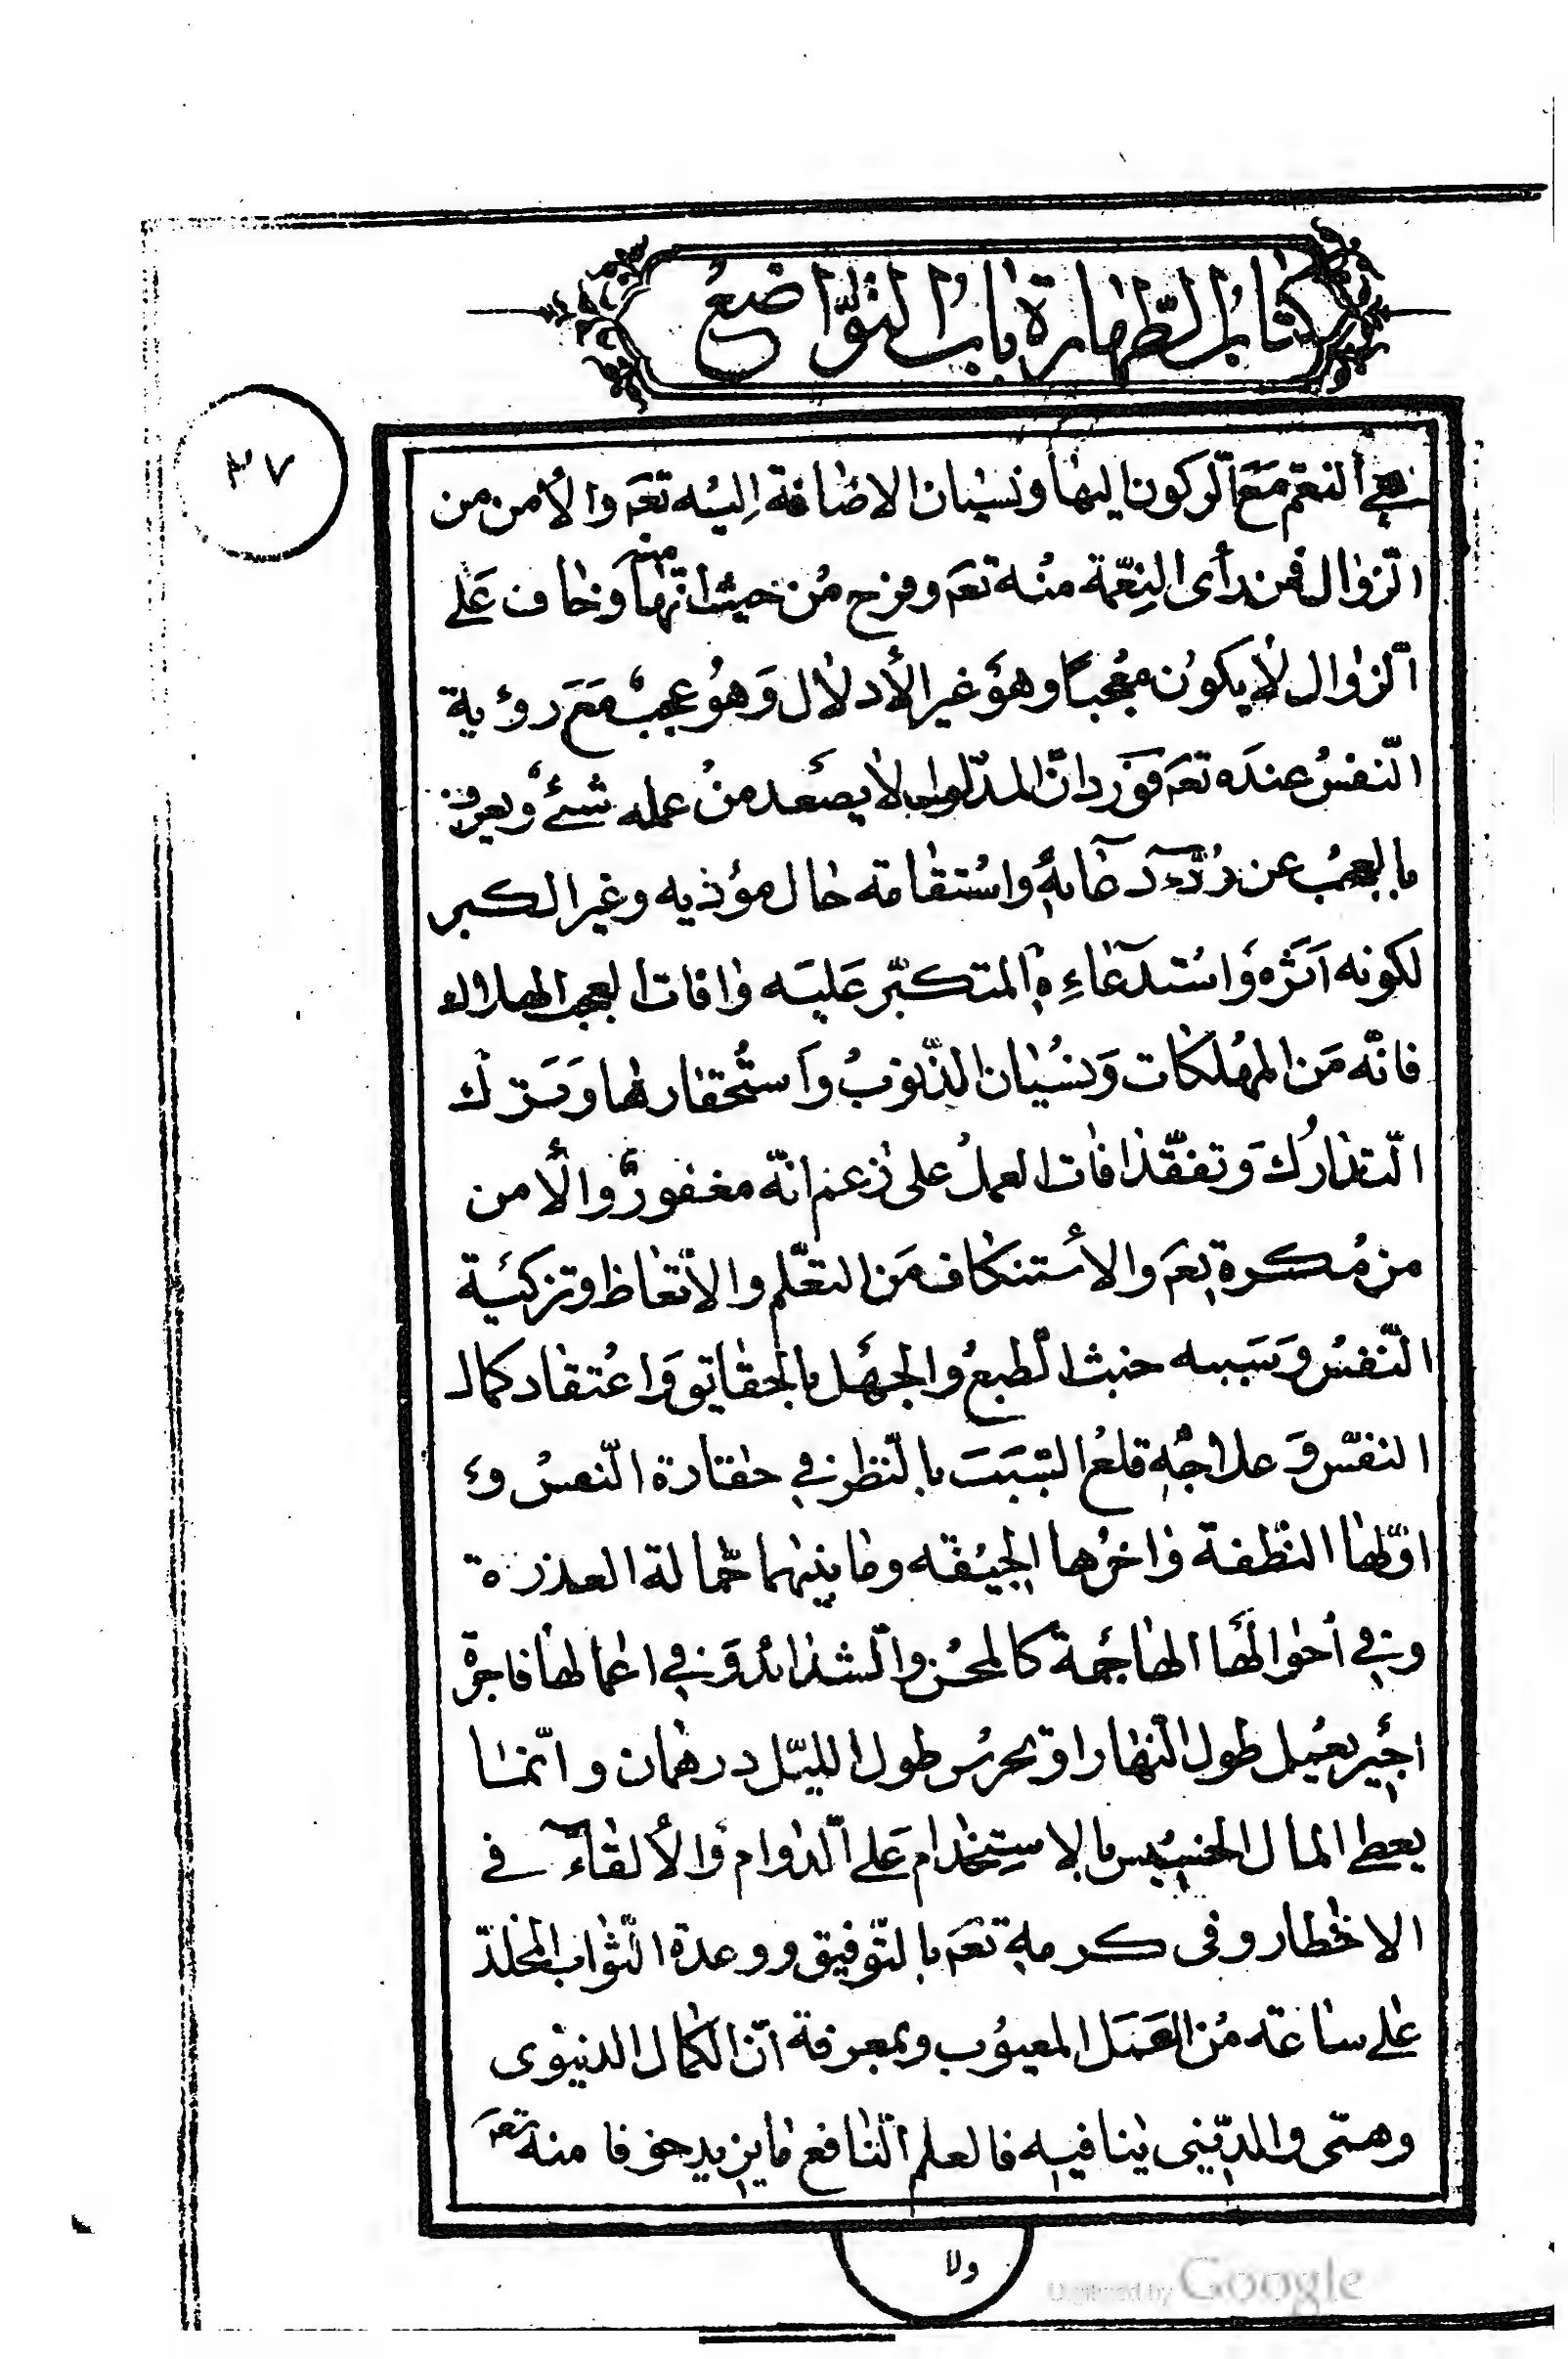 كتاب الطهارة باب التواضع
٣٧
النعم مع الركون اليها ونسيان الاضافة اليه تعۤ والأمن من
الزوال فمن رأى النعمة منه تعۤ وفرح من حيث انها منه وخاف على
الزوال لا يكون معجبا وهو غير الأدلال وهو عجب مع رؤية
النفس عنده تعۤ فورد ان المدل لا يصعد من عمله شئ ويعرف
بالعجب عن ردّ دعائه واستقامة حال مؤذيه وغير الكبر
لكونه اثره واستدعاءه المتكبر عليه وافات العجب الهلاك
فانه من المهلكات ونسيان الذنوب واستحقارها وترك
التدارك وتفقد افات العمل على زعم انه مغفور والأمن
من مكره تعۤ والأستنكاف من التعلم والاتعاظ وتزكية
النفس وسببه خبث الطبع والجهل بالحقايق واعتقاد كمال
النفس وعلاجه قلع السبب بالنظر في حقارة النفس و
اولها النطفة واخرها الجيفه وما بينهما حمالة العذرة
وفي أحوالها الهاجمة كالمحن والشدائد وفي اعمالها فاجرة
أجير يعمل طول النهار او يحرس طول الليل درهمان وانما
يعطى المال الخسيس بالاستخدام على الدوام والألقاء في
الاخطار وفى كرمه تعۤ بالتوفيق ووعدة الثواب المخلد
على ساعة من العمل المعيوب وبمعرفة ان الكمال الدنيوى
وهمى والدينى ينافيه فالعلم النافع ما يزيد خوفا منه تعۤ
ولا
Digitized by Google